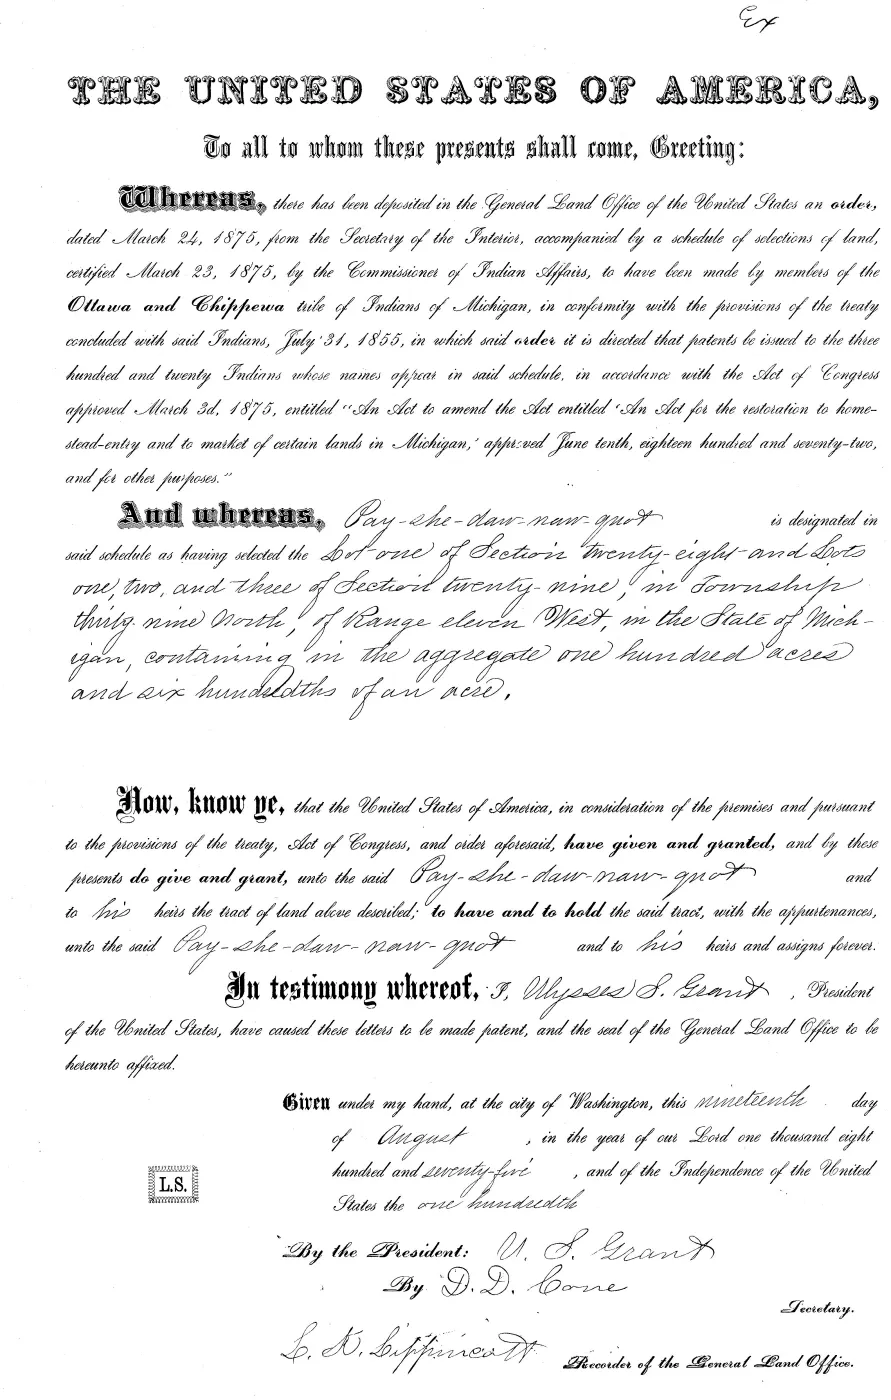 Ex
THE UNITED STATES OF AMERICA,
To all to whom these presents shall come, Greeting:
Whereas, there has been deposited in the General Land Office of the United States an order,
dated March 24, 1875, from the Secretary of the Interior, accompanied by a schedule of selections of land,
certified March 23, 1875, by the Commissioner of Indian Affairs, to have been made by members of the
Ottawa and Chippewa tribe of Indians of Michigan, in conformity with the provisions of the treaty
concluded with said Indians, July 31, 1855, in which said order it is directed that patents be issued to the three
hundred and twenty Indians whose names appear in said schedule, in accordance with the Act of Congress
approved March 3d, 1875, entitled "An Act to amend the Act entitled 'An Act for the restoration to home-
stead-entry and to market of certain lands in Michigan,' approved June tenth, eighteen hundred and seventy-two,
and for other purposes."
And whereas, Pay-she-daw-naw-quot is designated in
said schedule as having selected the Lot one of Section twenty-eight and Lots
one, two, and three of Section twenty-nine, in Township
thirty-nine North, of Range eleven West, in the State of Mich-
igan, containing in the aggregate one hundred acres
and six hundredths of an acre.
Now, know ye, that the United States of America, in consideration of the premises and pursuant
to the provisions of the treaty, Act of Congress, and order aforesaid, have given and granted, and by these
presents do give and grant, unto the said Pay-she-daw-naw-quot and
to his heirs the tract of land above described; to have and to hold the said tract, with the appurtenances,
unto the said Pay-she-daw-naw-quot and to his heirs and assigns forever.
In testimony whereof, I, Ulysses S. Grant, President
of the United States, have caused these letters to be made patent, and the seal of the General Land Office to be
hereunto affixed.
Given under my hand, at the city of Washington, this nineteenth day
of August, in the year of our Lord one thousand eight
hundred and seventy-five, and of the Independence of the United
L.S.
States the one hundredth
By the President: U. S. Grant
By D. D. Cone
Secretary.
L. K. Lippincott
Recorder of the General Land Office.